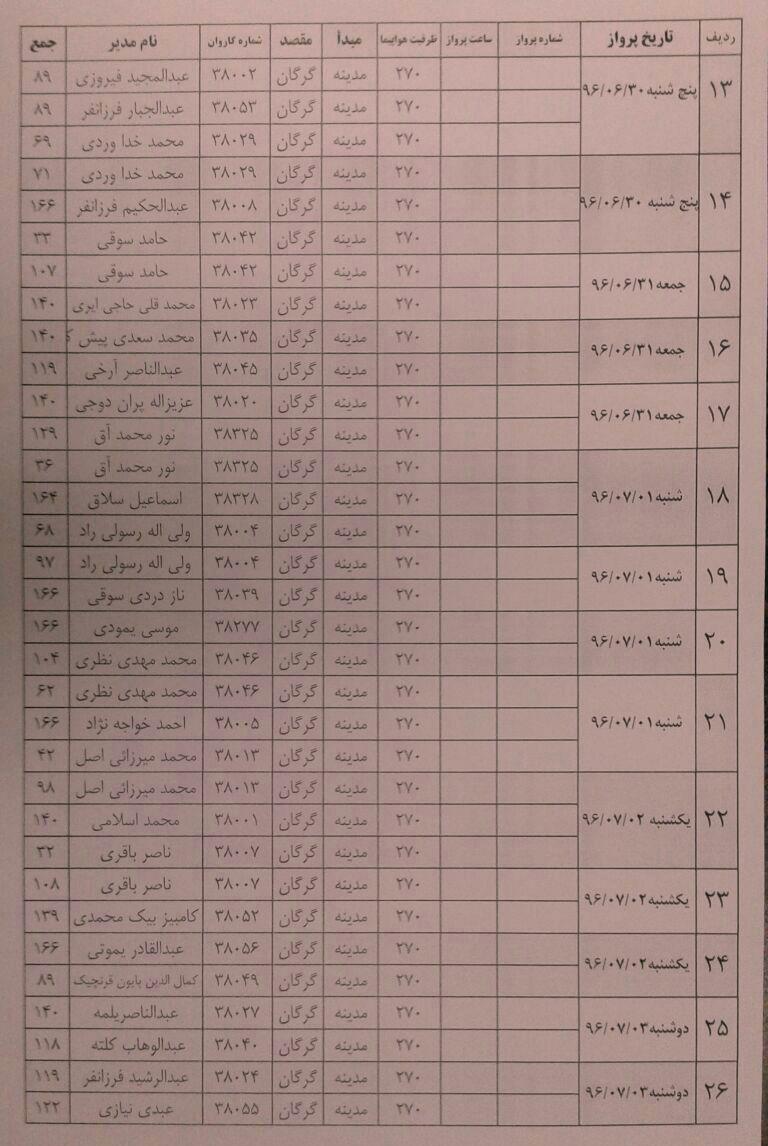 ردیف تاریخ پرواز شماره پرواز ساعت پرواز ظرفیت هواپیما مبدأ مقصد شماره کاروان نام مدیر جمع
۱۳ پنج شنبه ۹۶/۰۶/۳۰ ۲۷۰ مدینه گرگان ۳۸۰۰۲ عبدالمجید فیروزی ۸۹
۲۷۰ مدینه گرگان ۳۸۰۵۳ عبدالجبار فرزانفر ۸۹
۲۷۰ مدینه گرگان ۳۸۰۲۹ محمد خدا وردی ۶۹
۱۴ پنج شنبه ۹۶/۰۶/۳۰ ۲۷۰ مدینه گرگان ۳۸۰۲۹ محمد خدا وردی ۷۱
۲۷۰ مدینه گرگان ۳۸۰۰۸ عبدالحکیم فرزانفر ۱۶۶
۲۷۰ مدینه گرگان ۳۸۰۴۲ حامد سوقی ۳۳
۱۵ جمعه ۹۶/۰۶/۳۱ ۲۷۰ مدینه گرگان ۳۸۰۴۲ حامد سوقی ۱۰۷
۲۷۰ مدینه گرگان ۳۸۰۲۳ محمد قلی حاجی ایری ۱۴۰
۱۶ جمعه ۹۶/۰۶/۳۱ ۲۷۰ مدینه گرگان ۳۸۰۳۵ محمد سعدی پیش ۱۴۰
۲۷۰ مدینه گرگان ۳۸۰۴۵ عبدالناصر آرخی ۱۱۹
۱۷ جمعه ۹۶/۰۶/۳۱ ۲۷۰ مدینه گرگان ۳۸۰۲۰ عزیزاله پران دوجی ۱۴۰
۲۷۰ مدینه گرگان ۳۸۳۲۵ نور محمد آق ۱۲۹
۱۸ شنبه ۹۶/۰۷/۰۱ ۲۷۰ مدینه گرگان ۳۸۳۲۵ نور محمد آق ۳۶
۲۷۰ مدینه گرگان ۳۸۳۲۸ اسماعیل سلاق ۱۶۴
۲۷۰ مدینه گرگان ۳۸۰۰۴ ولی اله رسولی راد ۶۸
۱۹ شنبه ۹۶/۰۷/۰۱ ۲۷۰ مدینه گرگان ۳۸۰۰۴ ولی اله رسولی راد ۹۷
۲۷۰ مدینه گرگان ۳۸۰۳۹ ناز دردی سوقی ۱۶۶
۲۰ شنبه ۹۶/۰۷/۰۱ ۲۷۰ مدینه گرگان ۳۸۲۷۷ موسی یمودی ۱۶۶
۲۷۰ مدینه گرگان ۳۸۰۴۶ محمد مهدی نظری ۱۰۴
۲۱ شنبه ۹۶/۰۷/۰۱ ۲۷۰ مدینه گرگان ۳۸۰۴۶ محمد مهدی نظری ۶۲
۲۷۰ مدینه گرگان ۳۸۰۰۵ احمد خواجه نژاد ۱۶۶
۲۷۰ مدینه گرگان ۳۸۰۱۳ محمد میرزائی اصل ۴۲
۲۲ یکشنبه ۹۶/۰۷/۰۲ ۲۷۰ مدینه گرگان ۳۸۰۱۳ محمد میرزائی اصل ۹۸
۲۷۰ مدینه گرگان ۳۸۰۰۱ محمد اسلامی ۱۴۰
۲۷۰ مدینه گرگان ۳۸۰۰۷ ناصر باقری ۳۲
۲۳ یکشنبه ۹۶/۰۷/۰۲ ۲۷۰ مدینه گرگان ۳۸۰۰۷ ناصر باقری ۱۰۸
۲۷۰ مدینه گرگان ۳۸۰۵۲ کامبیز بیک محمدی ۱۳۹
۲۴ یکشنبه ۹۶/۰۷/۰۲ ۲۷۰ مدینه گرگان ۳۸۰۵۶ عبدالقادر یموتی ۱۶۶
۲۷۰ مدینه گرگان ۳۸۰۴۹ کمال الدین پایون قرنچیک ۸۹
۲۵ دوشنبه ۹۶/۰۷/۰۳ ۲۷۰ مدینه گرگان ۳۸۰۲۷ عبدالناصریلمه ۱۴۰
۲۷۰ مدینه گرگان ۳۸۰۴۰ عبدالوهاب کلته ۱۱۸
۲۶ دوشنبه ۹۶/۰۷/۰۳ ۲۷۰ مدینه گرگان ۳۸۰۲۴ عبدالرشید فرزانفر ۱۱۹
۲۷۰ مدینه گرگان ۳۸۰۵۵ عبدی نیازی ۱۲۲